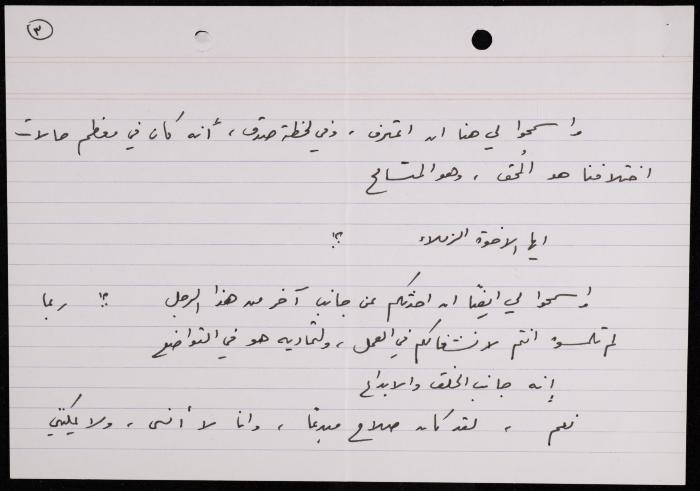 ٣
واسمحوا لي هنا ان اعترف ، وفي لحظة صدق ، أنه كان في معظم حالات
اختلافنا هو المُحق ، وهو المتسامح
ايها الاخوة الزملاء ؟!
واسمحوا لي ايضًا ان احدثكم عن جانب آخر من هذا الرجل ؟! ربما
لم تلمسوه انتم لانشغالكم في العمل ، ولتماديه هو في التواضع
إنه جانب الخلق والابداع
نعم ، لقد كان صلاح مبدعًا ، وانا لا أنسى ، ولا يمكنني